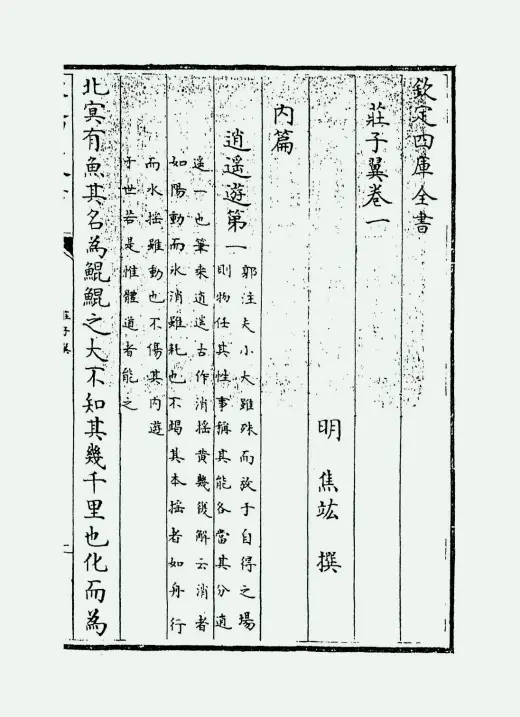 欽定四庫全書
莊子翼卷一
明 焦竑 撰
內篇
逍遙遊第一
郭注夫小大雖殊而放于自得之場
則物任其性事稱其能各當其分逍
遙一也筆乗逍遙古作消揺黄幾復解云消者
如陽動而氷消雖耗也不竭其本揺者如舟行
而水揺雖動也不傷其内遊
于世若是惟體道者能之
北㝠有魚其名為鯤鯤之大不知其幾千里也化而為
莊子翼